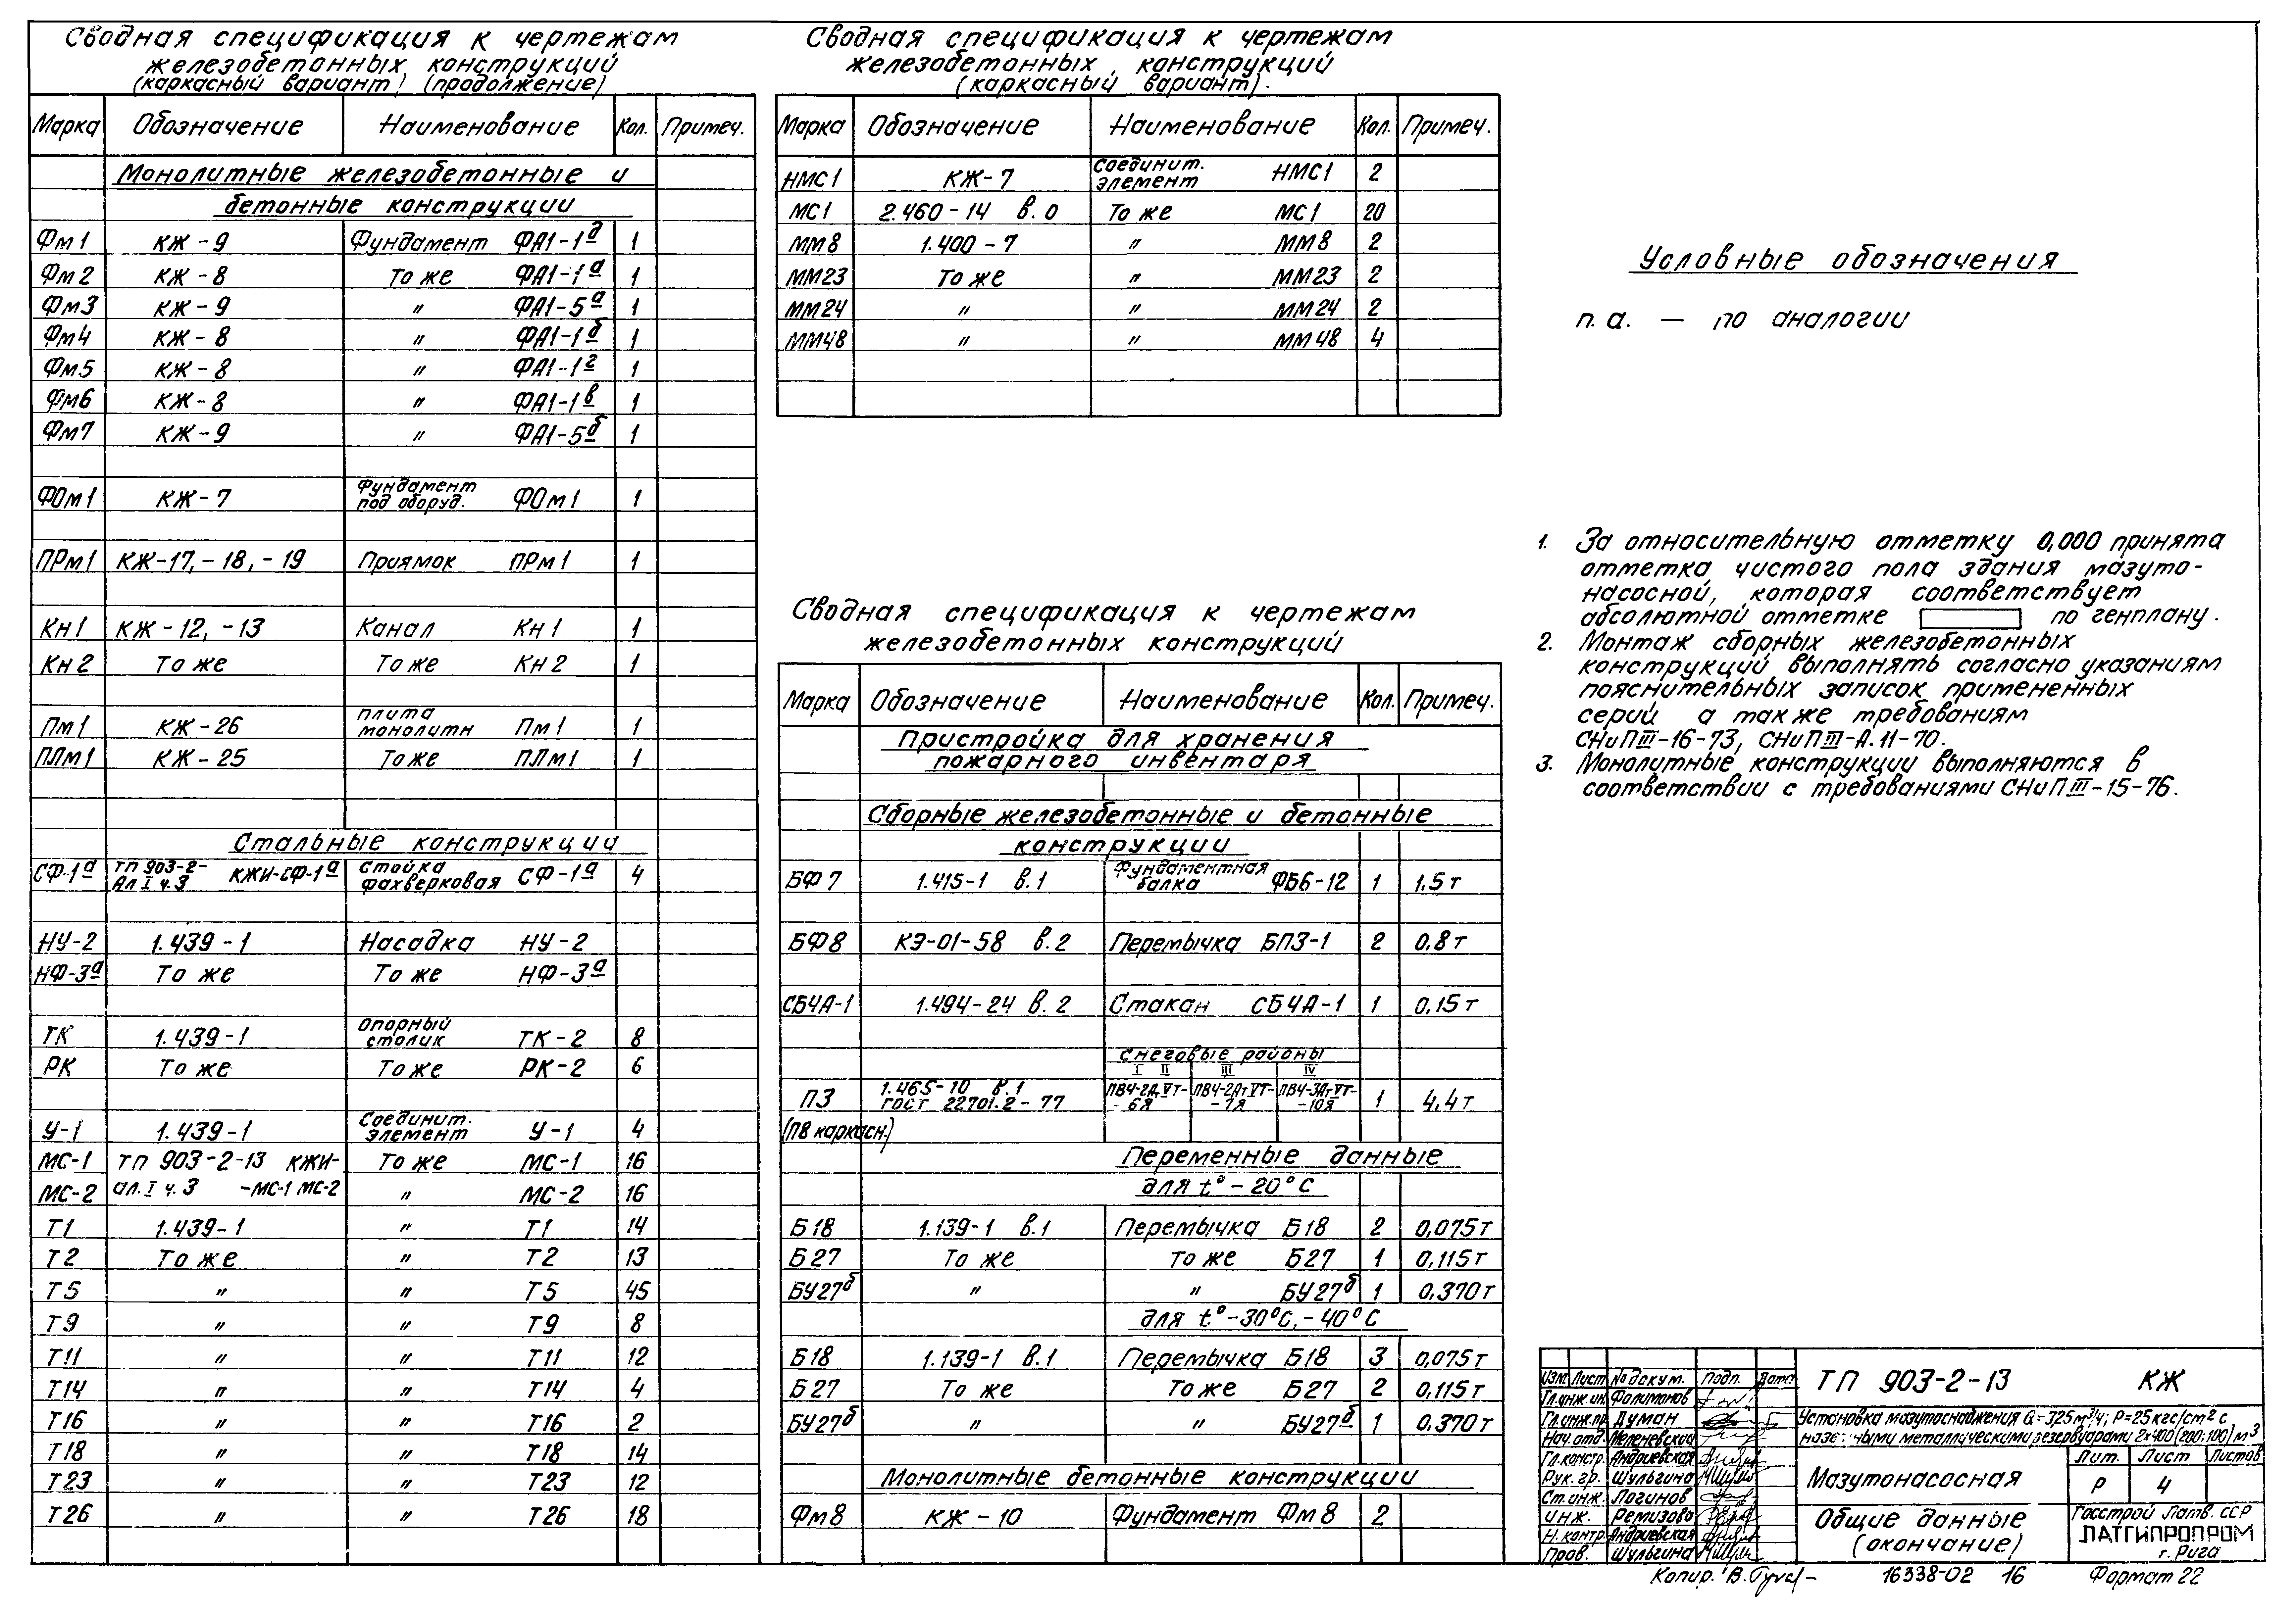 Сводная спецификация к чертежам
железобетонных конструкций
(каркасный вариант) (продолжение)
Марка Обозначение Наименование Кол. Примеч.
Монолитные железобетонные и
бетонные конструкции
Фм1 КЖ-9 Фундамент ФА1-1д 1
Фм2 КЖ-8 То же ФА1-1а 1
Фм3 КЖ-9 " ФА1-5а 1
Фм4 КЖ-8 " ФА1-1б 1
Фм5 КЖ-8 " ФА1-1г 1
Фм6 КЖ-8 " ФА1-1в 1
Фм7 КЖ-9 " ФА1-5б 1
ФОм1 КЖ-7 Фундамент под оборуд. ФОм1 1
ПРм1 КЖ-17,-18,-19 Приямок ПРм1 1
Кн1 КЖ-12,-13 Канал Кн1 1
Кн2 То же То же Кн2 1
Пм1 КЖ-26 плита монолитн Пм1 1
ПЛм1 КЖ-25 То же ПЛм1 1
Стальные конструкции
СФ-1а ТП 903-2- Ал I ч.3 КЖИ-СФ-1а Стойка фахверковая СФ-1а 4
НУ-2 1.439-1 Насадка НУ-2
НФ-3а То же То же НФ-3а
ТК 1.439-1 опорный столик ТК-2 8
РК То же То же РК-2 6
У-1 1.439-1 Соединит. элемент У-1 4
МС-1 ТП 903-2-13 КЖИ- То же МС-1 16
МС-2 ал. I ч.3 -МС-1 МС-2 " МС-2 16
Т1 1.439-1 " Т1 14
Т2 То же " Т2 13
Т5 " " Т5 45
Т9 " " Т9 8
Т11 " " Т11 12
Т14 " " Т14 4
Т16 " " Т16 2
Т18 " " Т18 14
Т23 " " Т23 12
Т26 " " Т26 18
Сводная спецификация к чертежам
железобетонных конструкций
(каркасный вариант).
Марка Обозначение Наименование Кол. Примеч.
НМС1 КЖ-7 Соединит. элемент НМС1 2
МС1 2.460-14 в.0 То же МС1 20
ММ8 1.400-7 " ММ8 2
ММ23 То же " ММ23 2
ММ24 " " ММ24 2
ММ48 " " ММ48 4
Сводная спецификация к чертежам
железобетонных конструкций
Марка Обозначение Наименование Кол. Примеч.
Пристройка для хранения
пожарного инвентаря
Сборные железобетонные и бетонные
конструкции
БФ7 1.415-1 в.1 Фундаментная балка ФБ6-12 1 1,5т
БФ8 КЭ-01-58 в.2 Перемычка БПЗ-1 2 0,8т
СБ4А-1 1.494-24 в.2 Стакан СБ4А-1 1 0,15т
Снеговые районы
I II III IV
П3 1.465-10 в.1 ГОСТ 22701.2-77 1 4,4т
(П8 каркасн.)
Переменные данные
для t°-20°С
Б18 1.139-1 в.1 Перемычка Б18 2 0,075т
Б27 То же То же Б27 1 0,115т
БУ27б " " БУ27б 1 0,370т
для t°-30°С,-40°С
Б18 1.139-1 в.1 Перемычка Б18 3 0,075т
Б27 То же То же Б27 2 0,115т
БУ27б " " БУ27б 1 0,370т
Монолитные бетонные конструкции
Фм8 КЖ-10 Фундамент Фм8 2
Условные обозначения
п.а. — по аналогии
1. За относительную отметку 0,000 принята
отметка чистого пола здания мазуто-
насосной, которая соответствует
абсолютной отметке по генплану.
2. Монтаж сборных железобетонных
конструкций выполнять согласно указаниям
пояснительных записок примененных
серий а также требованиям
СНиПIII-16-73, СНиПIII-А.11-70.
3. Монолитные конструкции выполняются в
соответствии с требованиями СНиПIII-15-76.
Изм. Лист №докум. Подп. Дата
Гл.инж.ин. Филимонов
Гл.инж.пр. Думан
Нач.отд. Меленевский
Гл.констр. Андриевская
Рук.гр. Шульгина
Ст.инж. Логинов
инж. Ремизова
Н.контр. Андриевская
Пров. Шульгина
ТП 903-2-13 КЖ
Установка мазутоснабжения Q=3,25м³/ч; P=25кгс/см² с
наземными металлическими резервуарами 2×400(200;100)м³
Мазутонасосная
Лит. Лист Листов
Р 4
Общие данные
(окончание)
Госстрой Латв. ССР
ЛАТГИПРОПРОМ
г. Рига
Копир. В.
16338-02 16
Формат 22